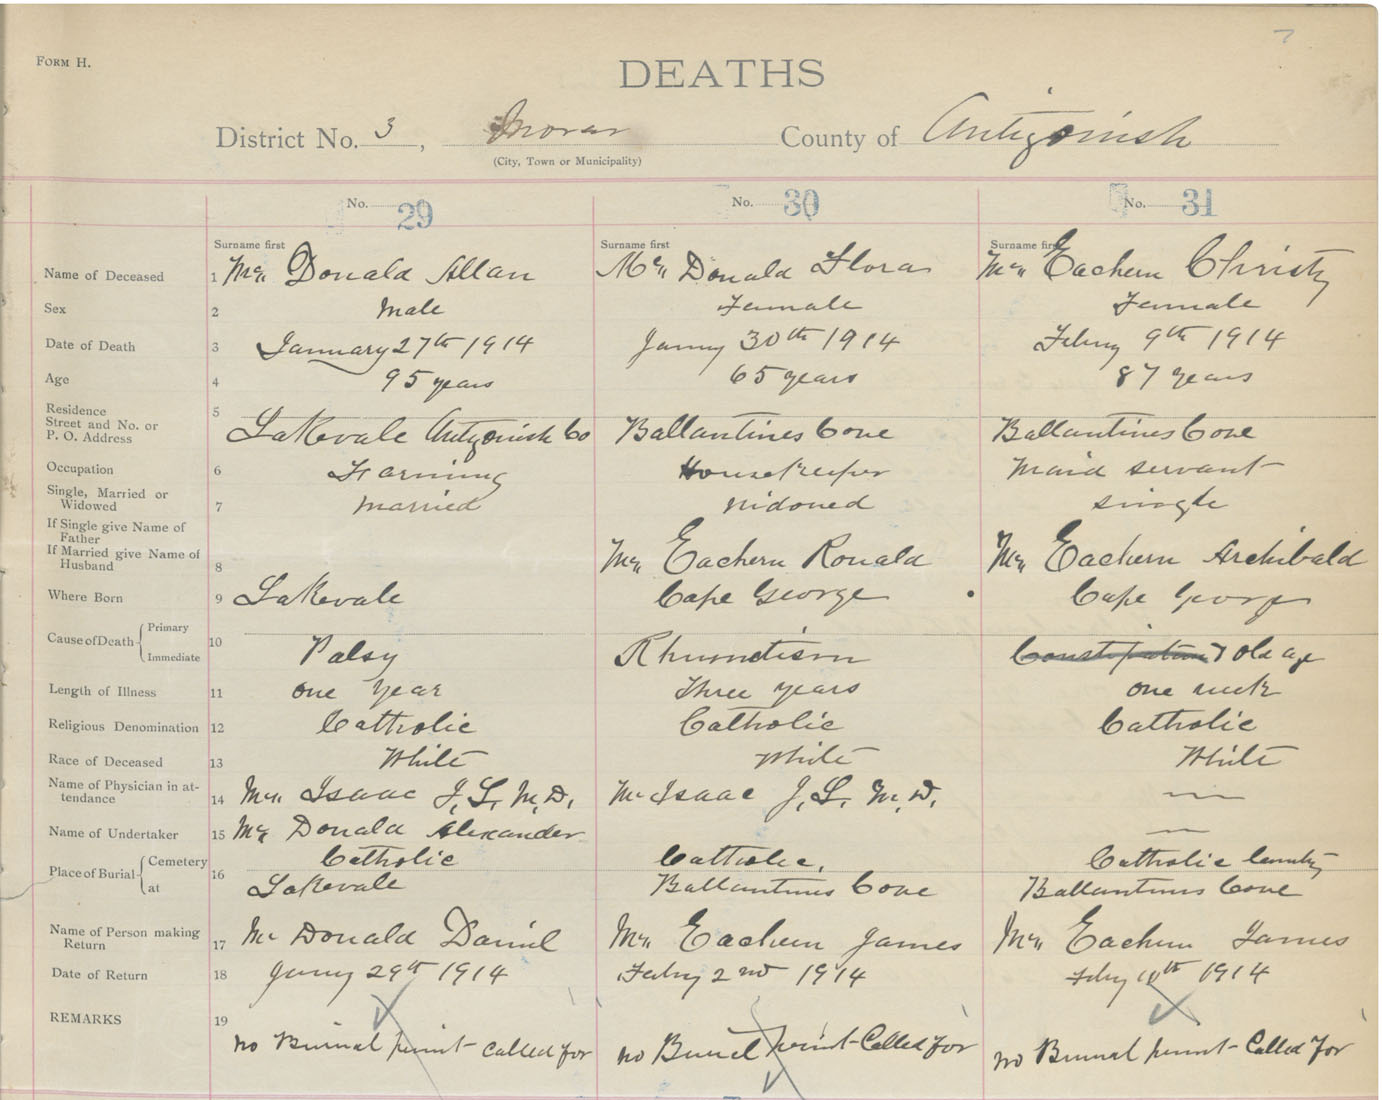 7
FORM H.
DEATHS
District No. 3, Morar County of Antigonish
(City, Town or Municipality)
No. 29 No. 30 No. 31
Surname first Surname first Surname first
Name of Deceased 1 Mc Donald Allan Mc Donald Flora Mc Eachern Christy
Sex 2 Male Female Female
Date of Death 3 January 27th 1914 Janry 30th 1914 Febry 9th 1914
Age 4 95 years 65 years 87 years
Residence 5
Street and No. or
P. O. Address Lakevale Antigonish Co Ballantines Cove Ballantines Cove
Occupation 6 Farming Housekeeper Maid servant
Single, Married or
Widowed 7 Married Widowed Single
If Single give Name of
Father
If Married give Name of
Husband 8 Mc Eachern Ronald Mc Eachern Archibald
Where Born 9 Lakevale Cape George Cape George
Cause of Death { Primary
Immediate 10 Palsy Rhumetism Constipation & Old age
Length of Illness 11 One Year Three years One week
Religious Denomination 12 Catholic Catholic Catholic
Race of Deceased 13 White White White
Name of Physician in at-
tendance 14 Mc Isaac J. L. M. D. Mc Isaac J. L. M. D. —
Name of Undertaker 15 Mc Donald Alexander —
Place of Burial { Cemetery Catholic Catholic, Catholic
at 16 Lakevale Ballantines Cove Ballantines Cove
Name of Person making
Return 17 Mc Donald Daniel Mc Eachern James Mc Eachern James
Date of Return 18 Janry 29th 1914 Febry 2nd 1914 Febry 10th 1914
REMARKS 19
no Burial permit called for no Burial permit Called for no Burial permit Called for